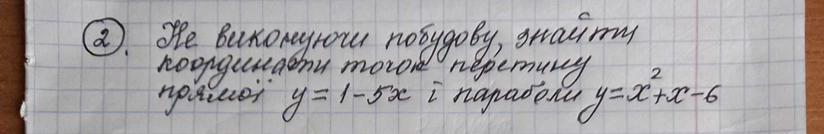 2. Не виконуючи побудову, знайти
координати точок перетину
прямої y = 1 - 5x і параболи y = x² + x - 6